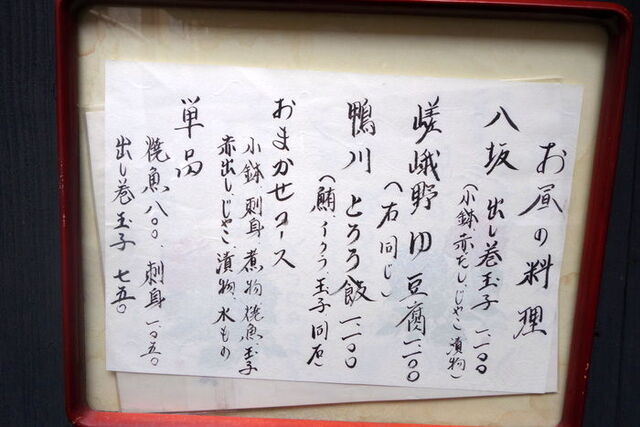 お昼の料理
八坂 出し巻玉子 一、一〇〇
(小鉢、赤だし、じゃこ、漬物)
嵯峨野 ゆ豆腐 一、一〇〇
(右同じ)
鴨川 とろろ飯 一、一〇〇
(鮪 イクラ 玉子 同右)
おまかせコース
小鉢 刺身 煮物 焼魚 玉子
赤出し、じゃこ、漬物、水もの
単品
焼魚 八〇〇、刺身 一、〇五〇
出し巻玉子 七五〇